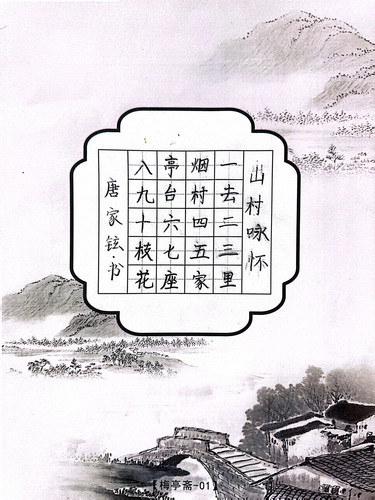 山村咏怀
一去二三里
烟村四五家
亭台六七座
八九十枝花
唐家铉·书
【梅亭斋-01】